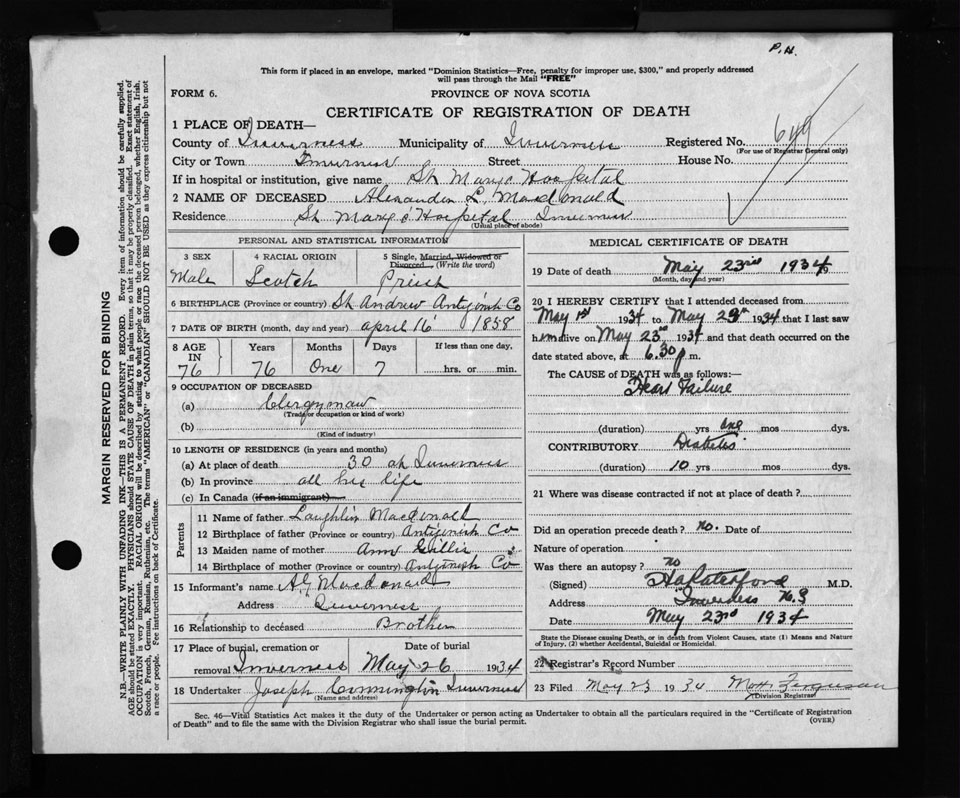 P.H.
This form if placed in an envelope, marked "Dominion Statistics—Free, penalty for improper use, $300," and properly addressed
will pass through the Mail "FREE"
FORM 6.
PROVINCE OF NOVA SCOTIA
CERTIFICATE OF REGISTRATION OF DEATH
1 PLACE OF DEATH—
County of Inverness Municipality of Inverness Registered No. 649
(For use of Registrar General only)
City or Town Inverness Street House No.
If in hospital or institution, give name St Marys Hospital
2 NAME OF DECEASED Alexander L. Macdonald
Residence St Mary's Hospital Inverness
(Usual place of abode)
PERSONAL AND STATISTICAL INFORMATION
3 SEX
Male
4 RACIAL ORIGIN
Scotch
5 Single, Married, Widowed or
Divorced (Write the word)
Priest
6 BIRTHPLACE (Province or country) St Andrew Antigonish Co
7 DATE OF BIRTH (month, day and year) April 16 1858
8 AGE IN Years Months Days If less than one day,
76 76 One 7 hrs. or min.
9 OCCUPATION OF DECEASED
(a) Clergyman
(Trade or occupation or kind of work)
(b)
(Kind of industry)
10 LENGTH OF RESIDENCE (in years and months)
(a) At place of death 30 at Inverness
(b) In province all his life
(c) In Canada (if an immigrant)
Parents
11 Name of father Laughlin Macdonald
12 Birthplace of father (Province or country) Antigonish Co
13 Maiden name of mother Ann Gillis
14 Birthplace of mother (Province or country) Antginish Co
15 Informant's name Macdonald
Address Inverness
16 Relationship to deceased Brother
17 Place of burial, cremation or Date of burial
removal Inverness May 26 1934
18 Undertaker Joseph Inverness
(Name and address)
MEDICAL CERTIFICATE OF DEATH
19 Date of death May 23rd 1934
(Month, day and year)
20 I HEREBY CERTIFY that I attended deceased from
May 1st 1934 to May 23rd 1934 that I last saw
him alive on May 23rd 1934 and that death occurred on the
date stated above, at 6.30 p m.
The CAUSE OF DEATH was as follows:
Heart Failure
(duration) yrs one mos dys.
CONTRIBUTORY Diabetis
(duration) 10 yrs mos dys.
21 Where was disease contracted if not at place of death?
Did an operation precede death? no. Date of
Nature of operation
Was there an autopsy? no
(Signed) M.D.
Address Inverness N.S
Date May 23rd 1934
State the Disease causing Death, or in death from Violent Causes, state (1) Means and Nature
of Injury, (2) whether Accidental, Suicidal or Homicidal.
22 Registrar's Record Number
23 Filed May 23 1934 Ferguson
Division Registrar
Sec. 46—Vital Statistics Act makes it the duty of the Undertaker or person acting as Undertaker to obtain all the particulars required in the "Certificate of Registration
of Death" and to file the same with the Division Registrar who shall issue the burial permit.
(OVER)
MARGIN RESERVED FOR BINDING
N.B.—WRITE PLAINLY WITH UNFADING INK—THIS IS A PERMANENT RECORD. Every item of information should be carefully supplied.
AGE should be stated EXACTLY. PHYSICIANS should STATE CAUSE OF DEATH in plain terms, so that it may be properly classified. Exact statement of
OCCUPATION is very important. RACIAL ORIGIN will be described by stating to what people or race the deceased person belonged, whether English, Irish,
Scotch, French, German, Russian, Ruthenian, etc. The terms "AMERICAN" or "CANADIAN" SHOULD NOT BE USED as they express citizenship but not
a race or people. See instructions on back of Certificate.